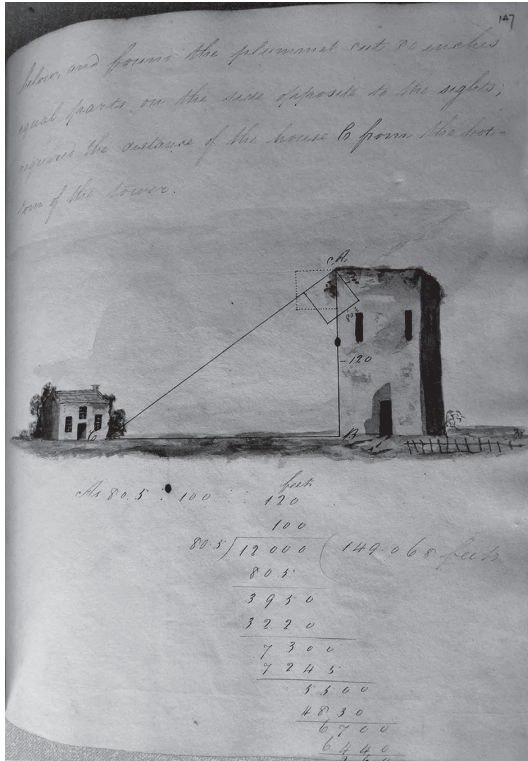 147
below, and found the plummet cut 80 inches
equal parts on the side opposite to the sights;
required the distance of the house C from the bot-
tom of the tower.
A
120
B
C
feet
As 80.5 : 100 120
100
80.5)12000(149.068 feet
805
3950
3220
7300
7245
5500
4830
6700
6440